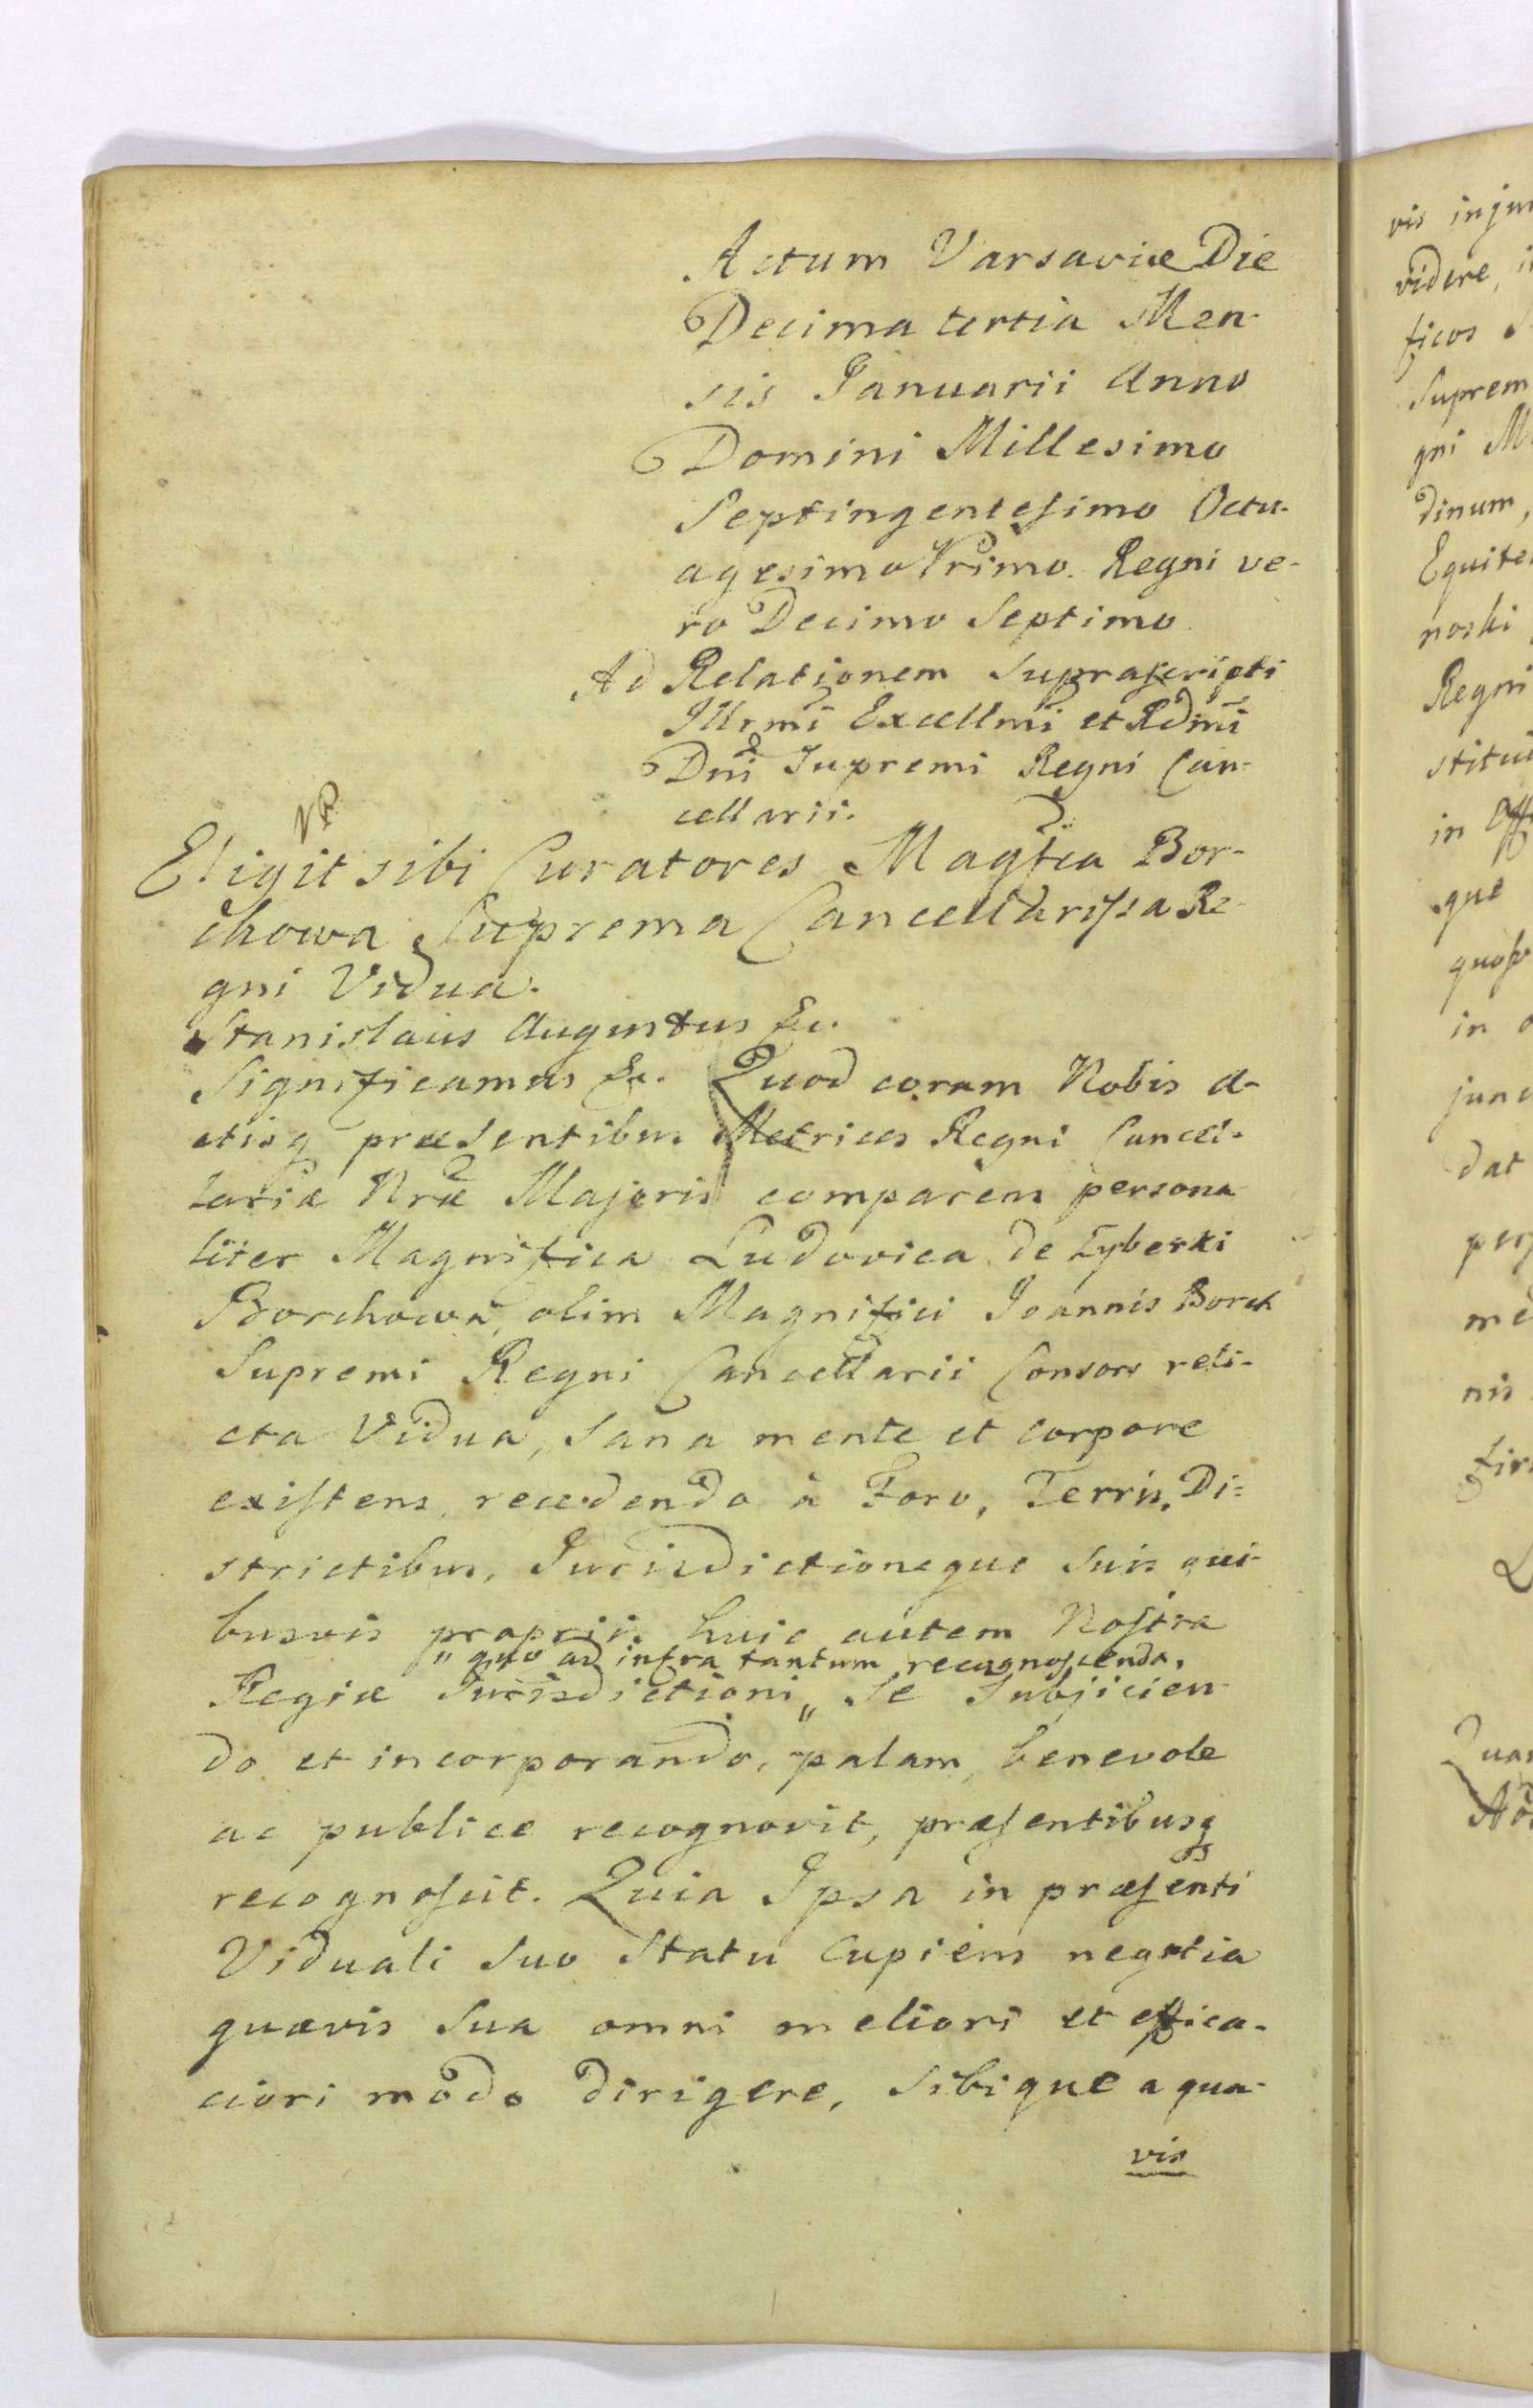 Actum Varsaviæ Die
Decima tertia Men-
sis Januarii Anno
Domini Millesimo
Septingentesimo Octu-
agesimo Primo. Regni ve-
ro Decimo Septimo
Ad Relationem Suprascripti
Illrmi Excellmi et Rdmi
Dni Supremi Regni Can-
cellarii.
Eligit sibi Curatores Magfca Bor-
chowa Suprema Cancellarissa Re-
gni Vidua.
Stanislaus Augustus &c.
Significamus &c. Quod coram Nobis a-
ctisq præsentibus Metrices Regni Cancel-
lariæ Nræ Majoris comparens persona
liter Magnifica Ludovica de Zyberki
Borchowa, olim Magnifici Joannis Borch
Supremi Regni Cancellarii Consors reli-
cta Vidua, Sana mente et Corpore
existens, recedendo à Foro, Terris, Di=
strictibus, Jurisdictioneque Suis qui-
busvis propriis huic autem Nostra
" quo ad infra tantum recognoscenda,
Regiæ Jurisdictioni " Se Subjicien-
do et incorporando, palam, benevole
ac publice recognovit, præsentibusq
recognoscit. Quia Ipsa in præsenti
Viduali Suo Statu Cupiens negotia
quævis Sua omni meliori et effica-
ciori modo dirigere, Sibique a qua-
vis
vis
videre,
ficos
Suprem
gni
dinum,
Equite
noski
Regni
in
que
in
dat
nis